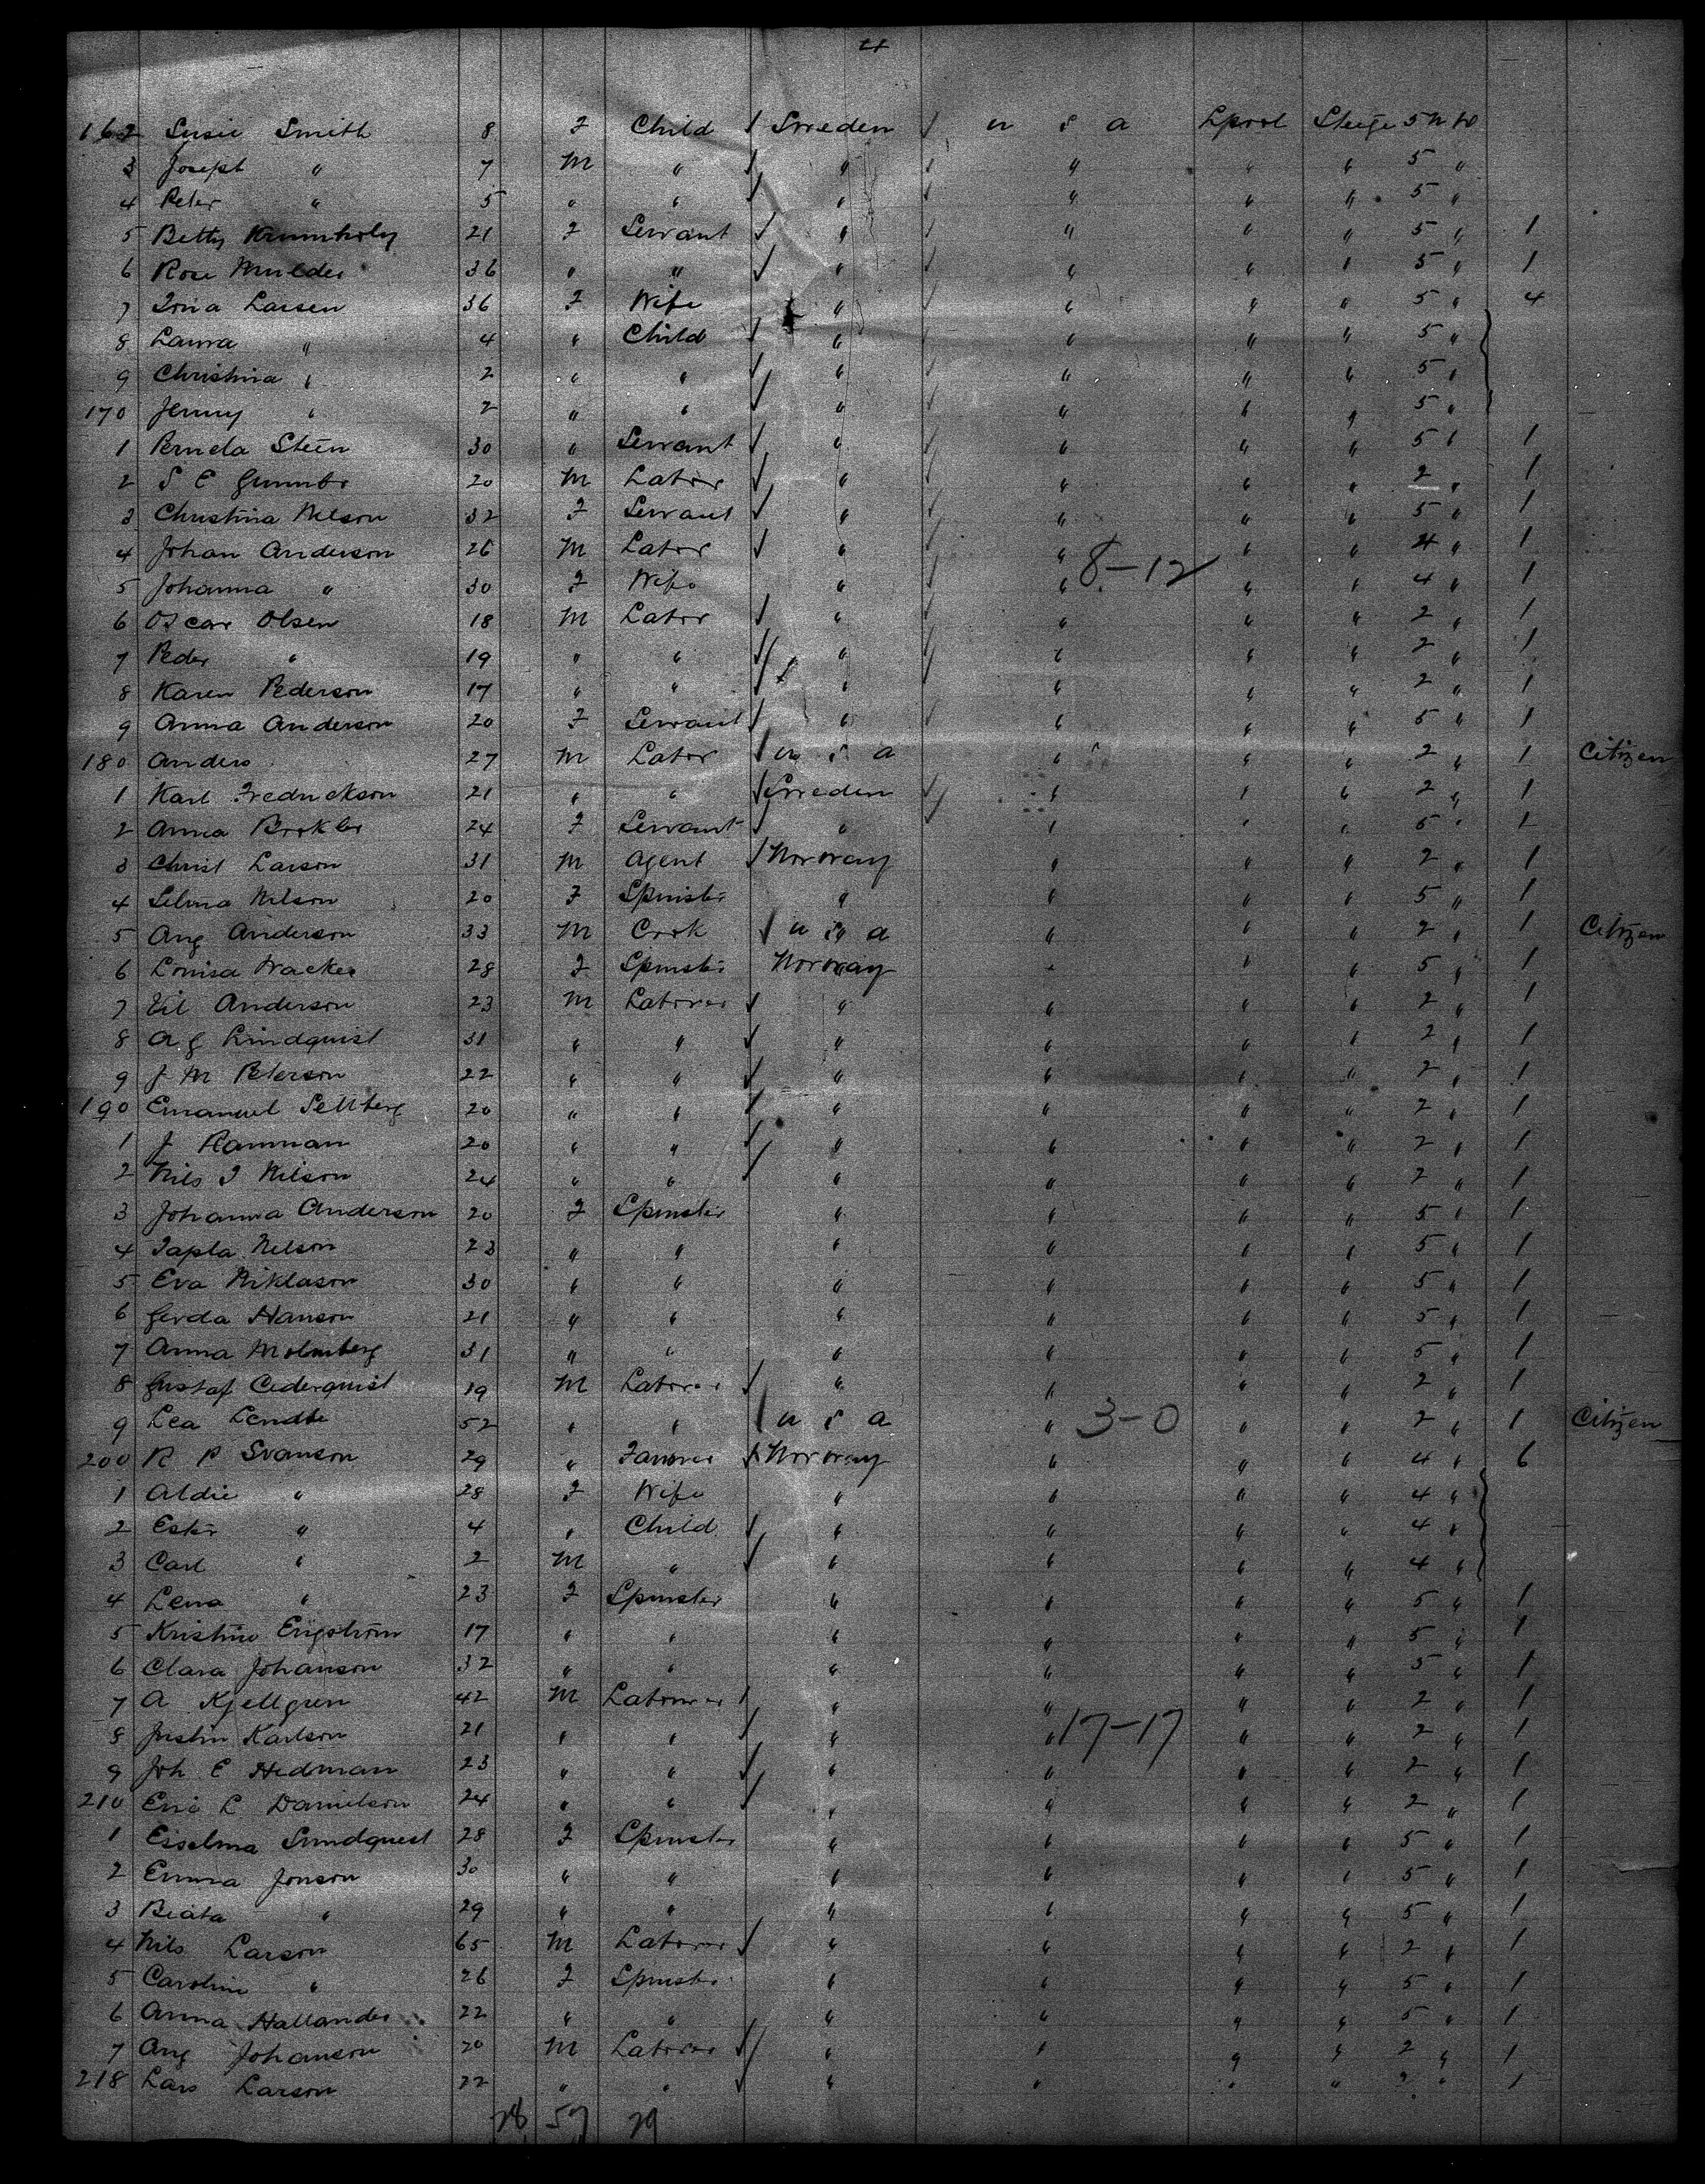 4
162 Susie Smith 8 F Child Sweden U S A Lpool Steige 5 N W
3 Joseph " 7 M " " " " " 5 "
4 Peter " 5 " " " " " " 5 "
5 Betty 21 F Servant " " " " 5 " 1
6 Rose Mulder 36 " " " " " " 5 " 1
7 Larsen 36 F Wife " " " " 5 " 4
8 Laura " 4 " Child " " " " 5 "
9 Christina " 2 " " " " " " 5 "
170 Jenny " 2 " " " " " " 5 "
1 Steen 30 " Servant " " " " 5 " 1
2 S E 20 M Labor " " " " 2 " 1
3 Christina Nelson 32 F Servant " " " " 5 " 1
4 Johan Anderson 26 M Labor " " " " 4 " 1
8-12
5 Johanna " 30 F Wife " " " " 4 " 1
6 Oscar Olsen 18 M Labor " " " " 2 " 1
7 Peder " 19 " " " " " " 2 " 1
8 Karen Pederson 17 " " " " " " 2 " 1
9 Anna Anderson 20 F Servant " " " " 5 " 1
180 Anders 27 M Labor U S A " " " 2 " 1 Citizen
1 Karl Fredrickson 21 " " Sweden " " " 2 " 1
2 Anna 24 F Servant " " " " 5 " 1
3 Christ Larson 31 M Agent Norway " " " 2 " 1
4 Selma Nilson 20 F Spinster " " " " 5 " 1
5 Aug Anderson 33 M Cook U S A " " " 2 " 1 Citizen
6 Louisa 28 F Spinster Norway " " " 5 " 1
7 Anderson 23 M Laborer " " " " 2 " 1
8 A G Lindquist 31 " " " " " " 2 " 1
9 J M Peterson 22 " " " " " " 2 " 1
190 Emanuel Sellberg 20 " " " " " " 2 " 1
1 J Ramman 20 " " " " " " 2 " 1
2 Nils J Nilson 24 " " " " " " 2 " 1
3 Johanna Anderson 20 F Spinster " " " " 5 " 1
4 Nelson 23 " " " " " " 5 " 1
5 Eva Niklason 30 " " " " " " 5 " 1
6 Gerda Hanson 21 " " " " " " 5 " 1
7 Anna Molmberg 31 " " " " " " 5 " 1
8 Gustaf Cederquist 19 M Laborer " " " " 2 " 1
9 Lea 52 " " U S A " " " 2 " 1 Citizen
3-0
200 R P Svanson 29 " Farmer Norway " " " 4 " 6
1 Aldie " 28 F Wife " " " " 4 "
2 Ester " 4 " Child " " " " 4 "
3 Carl " 2 M " " " " " 4 "
4 Lena " 23 F Spinster " " " " 5 " 1
5 Kristine Engstrom 17 " " " " " " 5 " 1
6 Clara Johanson 32 " " " " " " 5 " 1
7 A Kjellgren 42 M Laborer " " " " 2 " 1
8 Justin Karlson 21 " " " " " " 2 " 1
17-17
9 Joh E Hedman 23 " " " " " " 2 " 1
210 Eric L Danielson 24 " " " " " " 2 " 1
1 Sundquest 28 F Spinster " " " " 5 " 1
2 Emma Jonson 30 " " " " " " 5 " 1
3 Beata " 29 " " " " " " 5 " 1
4 Nils Larson 65 M Laborer " " " " 2 " 1
5 Caroline " 26 F Spinster " " " " 5 " 1
6 Anna Hallander 22 " " " " " " 5 " 1
7 Aug Johanson 20 M Laborer " " " " 2 " 1
218 Lars Larson 22 " " " " " " 2 " 1
28 57 29